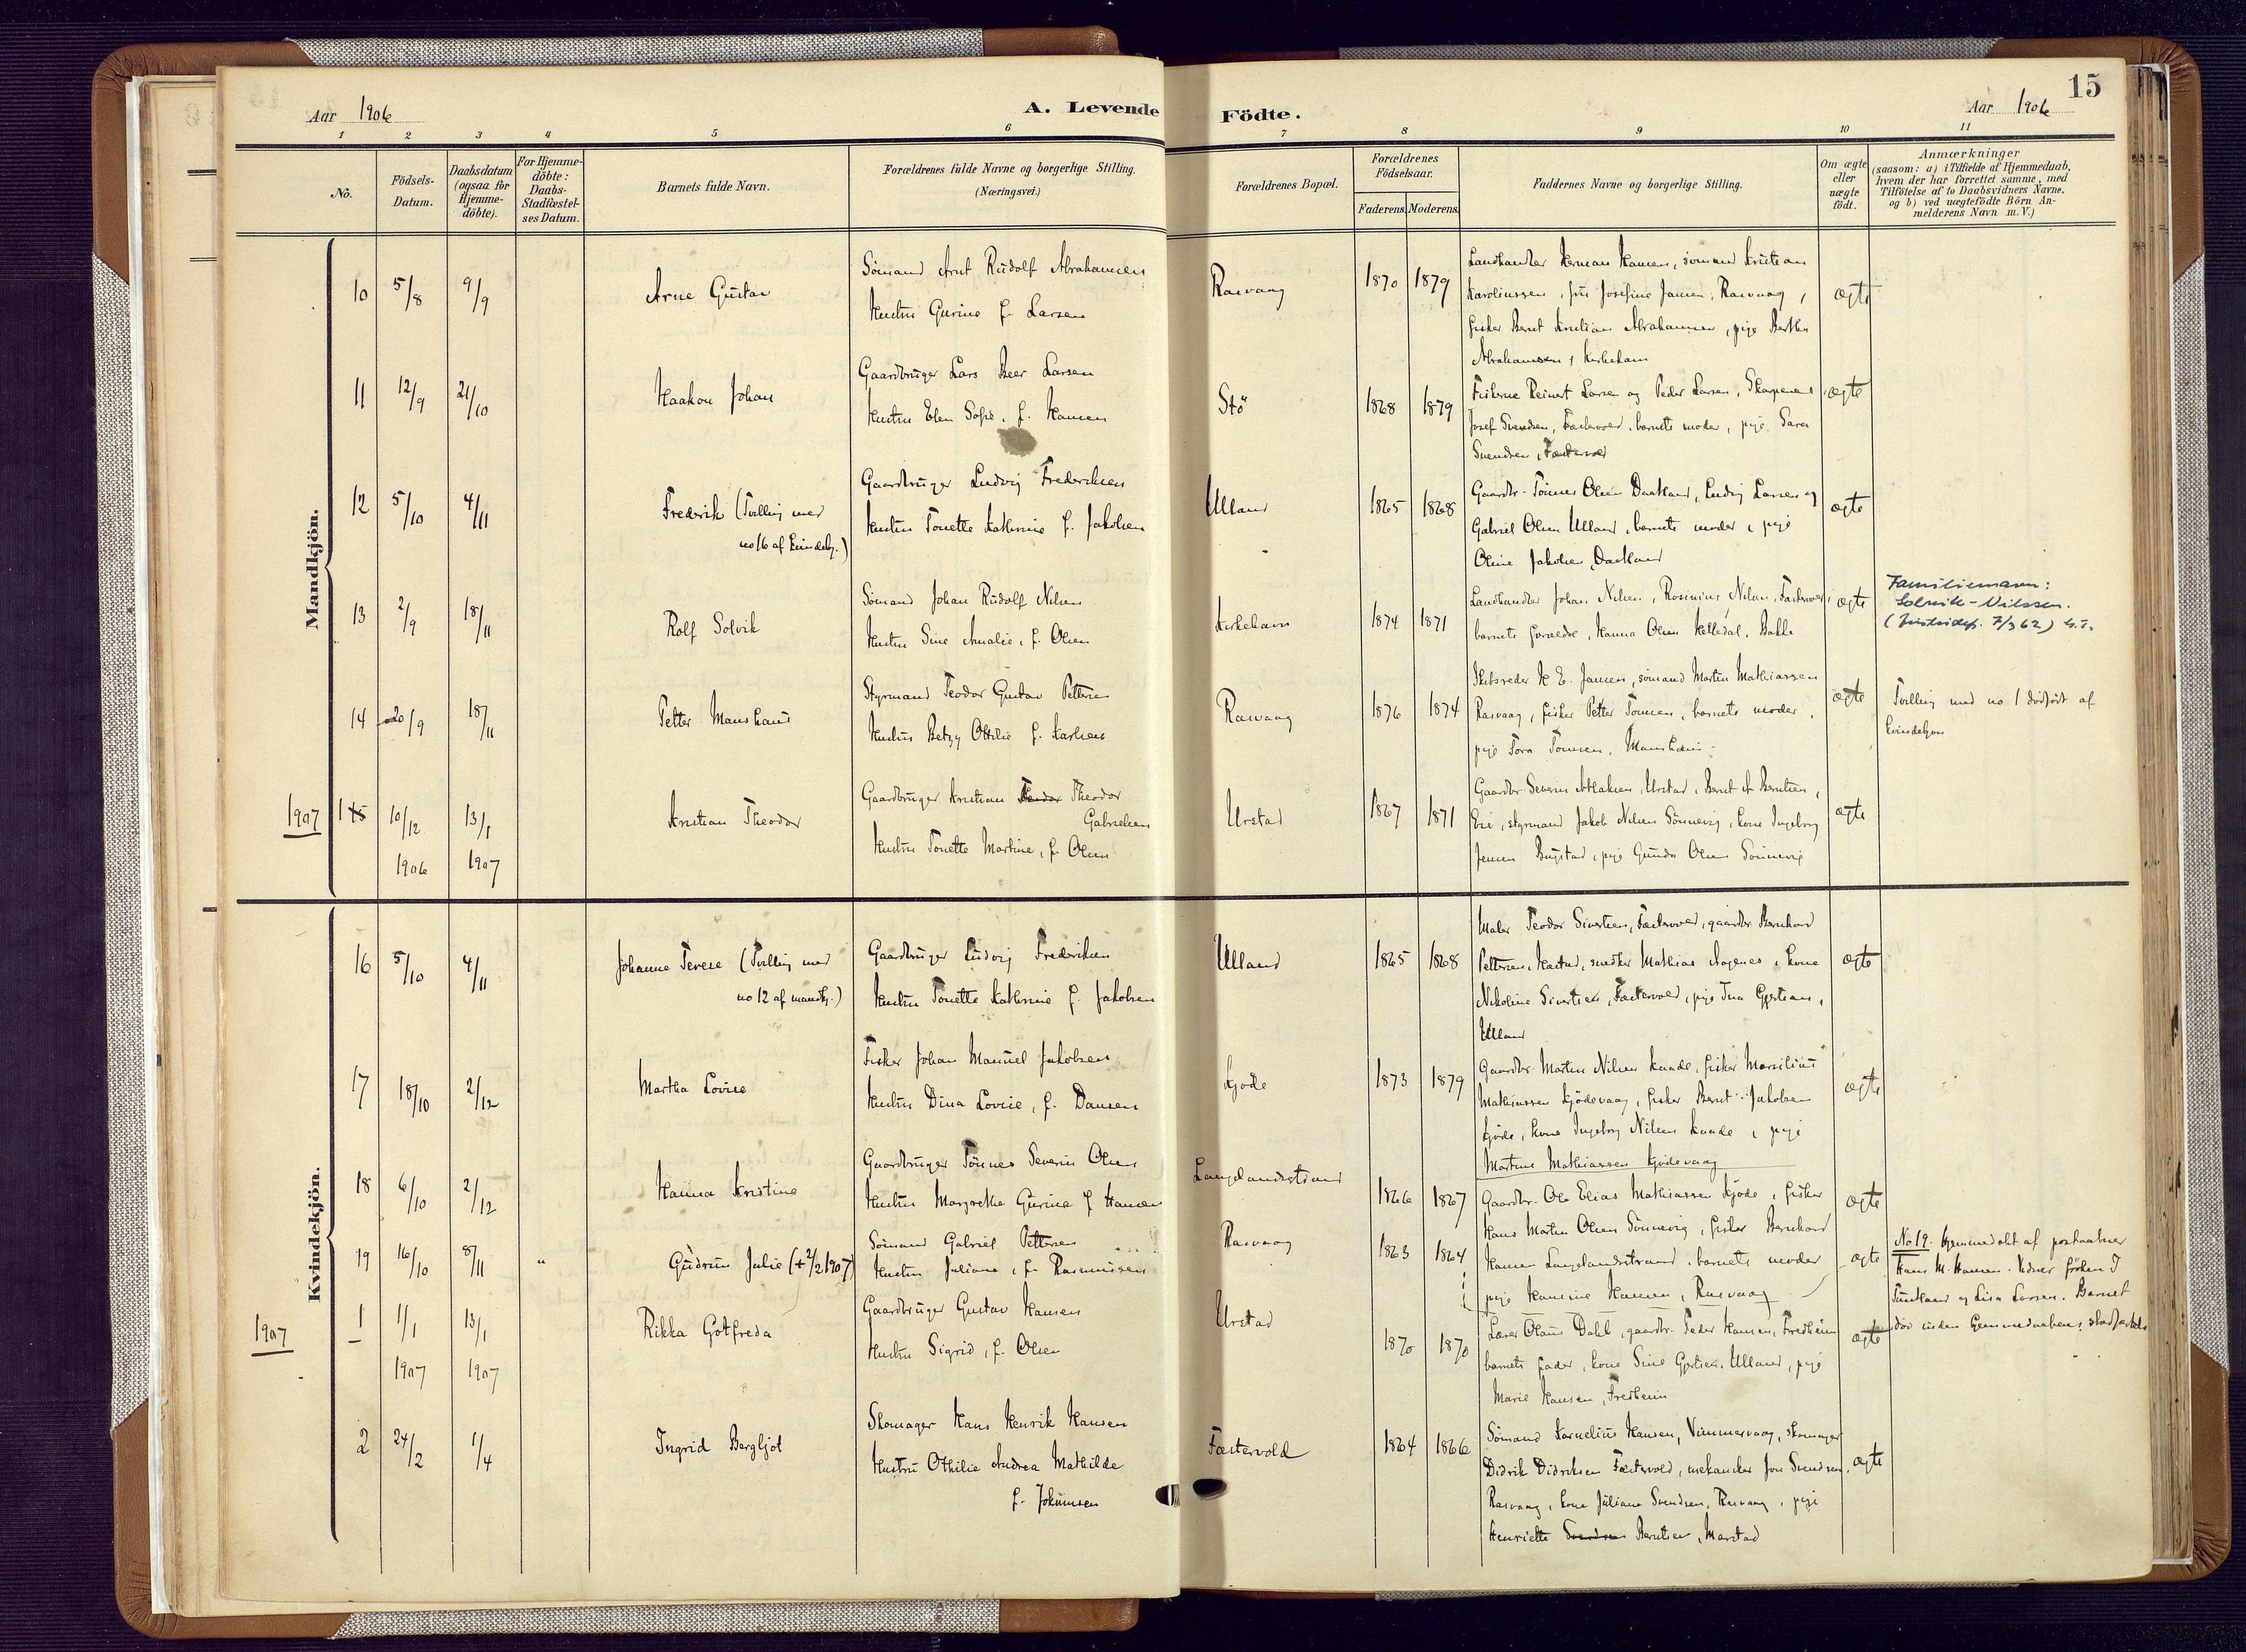 15
Aar 1906
A. Levende Födte.
Aar 1906
1 2 3 4 5 6 7 8 9 10 11
No.
Födsels-Datum.
Daabsdatum (ogsaa for Hjemme-döbte).
For Hjemme-döbte: Daabs-Stadfæstel-ses Datum.
Barnets fulde Navn.
Forældrenes fulde Navne og borgerlige Stilling.
(Næringsvei.)
Forældrenes Bopæl.
Forældrenes Födselsaar.
Faderens. Moderens.
Faddernes Navne og borgerlige Stilling.
Om ægte eller uægte födt.
Anmærkninger
(saasom: a) i Tilfælde af Hjemmedaab,
hvem der har forrettet samme, med
Tilföielse af to Daabsvidners Navne,
og b) ved uægtefödte Börn An-
melderens Navn m. V.)
Mandkjön.
10 5/8 9/9 Arne Gustav
Sömand Arnt Rudolf Abrahamsen
Hustru Gurine f. Larsen
Rasvaag 1870 1879
Landhandler Herman Hansen, sömand Kristian
Karoliussen, fru Josefine Jansen, Rasvaag,
fisker Bernt Kristian Abrahamsen, pige Bertha
Abrahamsen, Kirkehavn
ægte
11 12/9 21/10 Haakon Johan
Gaardbruger Lars Beer Larsen
Hustru Elen Sofie, f. Hansen
Stö 1868 1879
Fiskerne Reinert Larsen og Peder Larsen, Skarpenes
Josef Svendsen, Fæstervold, barnets moder, pige Sara
Svendsen, Fæstervold
ægte
12 5/10 4/11 Frederik (Tvilling med
no 16 af kvindekj.)
Gaardbruger Ludvig Frederiksen
Hustru Tonette Kathrine f. Jakobsen
Ulland 1865 1868
Gaardbr. Tönnes Olsen Daatland, Ludvig Larsen og
Gabriel Olsen Ulland, barnets moder, pige
Oline Jakobsen, Daatland
ægte
13 2/9 18/11 Rolf Solvik
Sömand Johan Rudolf Nilsen
Hustru Sine Amalie, f. Olsen
Kirkehavn 1874 1871
Landhandler Johan Nilsen, Rosinius Nilsen, Fæstervold,
barnets forældre, Hanna Olsen Kelledal, Bakke
ægte
Familienavn:
Solvik-Nilssen.
(Justisdep. 7/3 62)
14 20/9 18/11 Petter Manshaus
Styrmand Teodor Gustav Pettersen
Hustru Betzy Ottilie f. Karlsen
Rasvaag 1876 1874
Skibsreder H. E. Jansen, sömand Martin Mathiassen
Rasvaag, fisker Petter Tönnesen, barnets moder,
pige Tora Tönnesen, Manshaus
ægte
Tvilling med no 1 dödfödt af
kvindekjön
1907 1 15 10/12 1906 13/1 1907 Kristian Theodor
Gaardbruger Kristian Teodor Theodor
Gabrielsen
Hustru Tonette Martine, f. Olsen
Urstad 1867 1871
Gaardbr. Severin Atlaksen, Urstad, Bernt A. Berntsen,
Eie, styrmand Jakob Nilsen Sönnevig, kone Ingeborg
Jensen Bugstad, pige Gunda Olsen Sönnevig
ægte
Kvindekjön.
16 5/10 4/11 Johanne Terese (Tvilling med
no 12 af mandkj.)
Gaardbruger Ludvig Frederiksen
Hustru Tonette Kathrine f. Jakobsen
Ulland 1865 1868
Maler Teodor Sivertsen, Fæstervold, gaardbr Bernhard
Pettersen, Hastad, snedker Mathias Aagenes, kone
Nikoline Sivertsen, Fæstervold, pige Ina Gjertsen,
Ulland
ægte
17 18/10 2/12 Martha Lovise
Fisker Johan Manuel Jakobsen
Hustru Dina Lovise, f. Dansen
Kjöde 1873 1879
Gaardbr. Martin Nilsen Knade, fisker Marsilius
Mathiassen Kjödevaag, fisker Bernt Jakobsen
Kjöde, kone Ingeborg Nilsen Knade, pige
Martine Mathiassen Kjödevaag
ægte
18 6/10 2/12 Hanna Kristine
Gaardbruger Tönnes Severin Olsen
Hustru Margrethe Gurine f. Hansen
Langelandsstrand 1866 1867
Gaardbr. Ole Elias Mathiassen Kjöde, fisker
Hans Martin Olsen Sönnevig, fisker Bernhard
Hansen Langelandsstrand, barnets moder
pige Hansine Hansen, Rasvaag
ægte
19 16/10 8/11 " Gudrun Julie (+ 2/2 1907)
Sömand Gabriel Pettersen
Hustru Juliane, f. Rasmussen
Rasvaag 1863 1864
ægte
No 19. hjemmedöbt af postaabner
Hans M. Hansen. Vidner fröken J
Tuntland og Lisa Larsen. Barnet
döde inden hjemmedaabens stadfæstelse
1907 1 1/1 1907 13/1 1907 Rikka Gotfreda
Gaardbruger Gustav Hansen
Hustru Sigrid, f. Olsen
Urstad 1870 1870
Lærer Olaus Dahl, gaardbr. Peder Hansen, Fredheim
barnets fader, kone Sine Gjertsen, Ulland, pige
Marie Hansen, Fredheim
ægte
2 24/2 1/4 Ingrid Bergljot
Skomager Hans Henrik Hansen
Hustru Othilie Andrea Mathilde
f. Jokumsen
Fæstervold 1864 1866
Sömand Kornelius Hansen, Vimmervaag, skomager
Didrik Didriksen Fæstervold, mekaniker Jon Svendsen,
Rasvaag, kone Juliane Svendsen, Rasvaag, pige
Henriette Svendsen Berntsen, Marstad
ægte